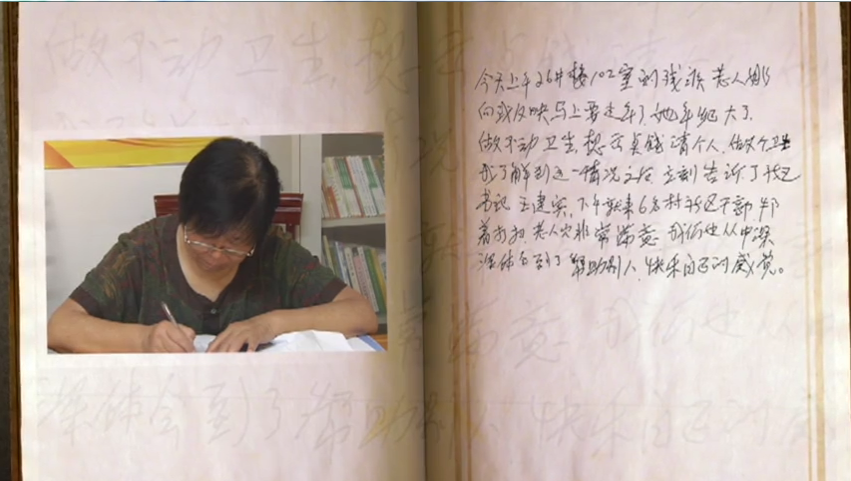 今天上午26#楼102室 残疾老人
向我反映马上要过年了她年纪大了
做不动卫生,想出点钱请个人,做个卫生
我了解到这一情况之后 立刻告诉了
书记 王建 下午就来6名村社区干部 帮
着打扫 老人家非常满意 我们也从中深
深体会到了 帮助别人,快乐自己的感觉。
做不动卫生,想
满意 我们也从
深体会到了帮助别人 快乐自己的感